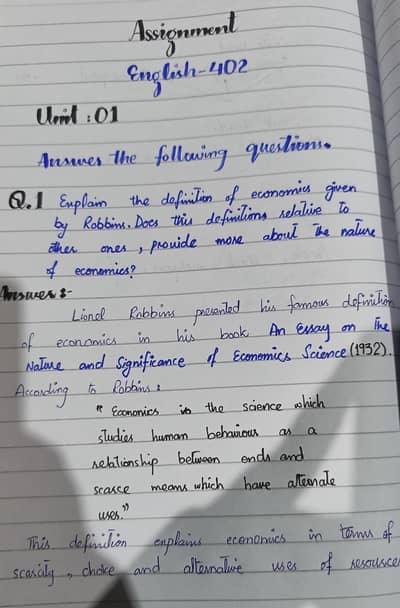 Assignment
English-402
Unit : 01
Answer the following questions.
Q.1 Explain the definition of economics given
by Robbins. Does this definitions relative to
other ones, provide more about the nature
of economics?
Answer :-
Lionel Robbins presented his famous definition
of economics in his book An Essay on The
Nature and Significance of Economics Science (1932).
According to Robbins :
" Economics is the science which
studies human behaviour as a
relationship between ends and
scarce means which have alternate
uses."
This definition explains economics in terms of
scarcity, choice and alternative uses of resources